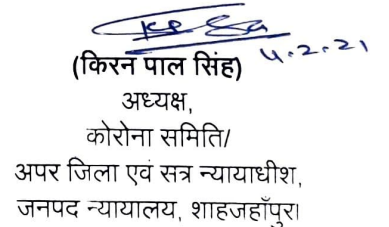 4.2.21
(किरन पाल सिंह)
अध्यक्ष,
कोरोना समिति/
अपर जिला एवं सत्र न्यायाधीश,
जनपद न्यायालय, शाहजहाँपुर।